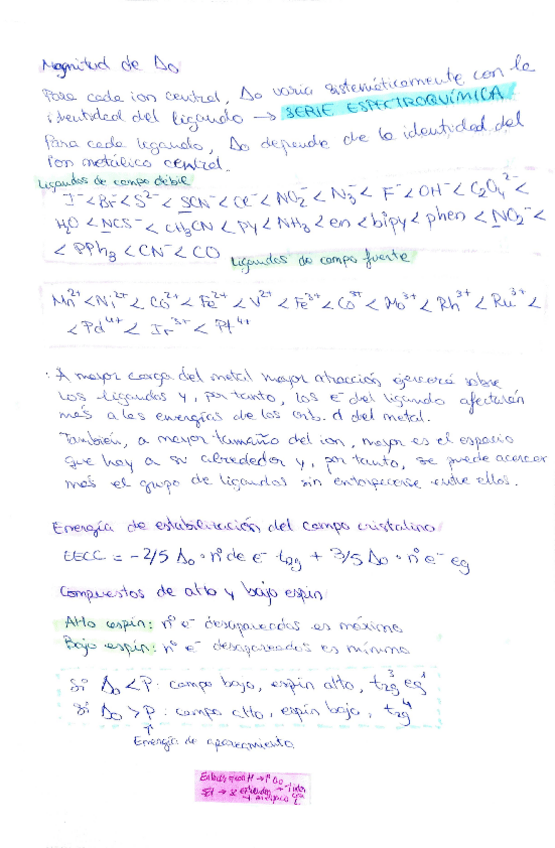 Magnitud de Δo
Para cada ion central, Δo varía sistemáticamente con la
identidad del ligando → SERIE ESPECTROQUÍMICA
Para cada ligando, Δo depende de la identidad del
ion metálico central.
Ligandos de campo débil
I⁻ < Br⁻ < S²⁻ < SCN⁻ < Cl⁻ < NO₂⁻ < N₃⁻ < F⁻ < OH⁻ < C₂O₄²⁻ <
H₂O < NCS⁻ < CH₃CN < py < NH₃ < en < bipy < phen < NO₂⁻ <
< PPh₃ < CN⁻ < CO
Ligandos de campo fuerte
Mn²⁺ < Ni²⁺ < Co²⁺ < Fe²⁺ < V²⁺ < Fe³⁺ < Co³⁺ < Mo³⁺ < Rh³⁺ < Ru³⁺ <
< Pd⁴⁺ < Ir³⁺ < Pt⁴⁺
· A mayor carga del metal mayor atracción ejercerá sobre
los ligandos y, por tanto, los e⁻ del ligando afectarán
más a las energías de los orb. d del metal.
También, a mayor tamaño del ion, mayor es el espacio
que hay a su alrededor y, por tanto, se puede acercar
más el grupo de ligandos sin entorpecerse entre ellos.
Energía de estabilización del campo cristalino
EECC = -2/5 Δo · nº de e⁻ t₂g + 3/5 Δo · nº e⁻ eg
Compuestos de alto y bajo espín
Alto espín: nº e⁻ desapareados es máximo
Bajo espín: nº e⁻ desapareados es mínimo
Si Δo < P: campo bajo, espín alto, t₂g³ eg¹
Si Δo > P: campo alto, espín bajo, t₂g⁴
↑
Energía de apareamiento